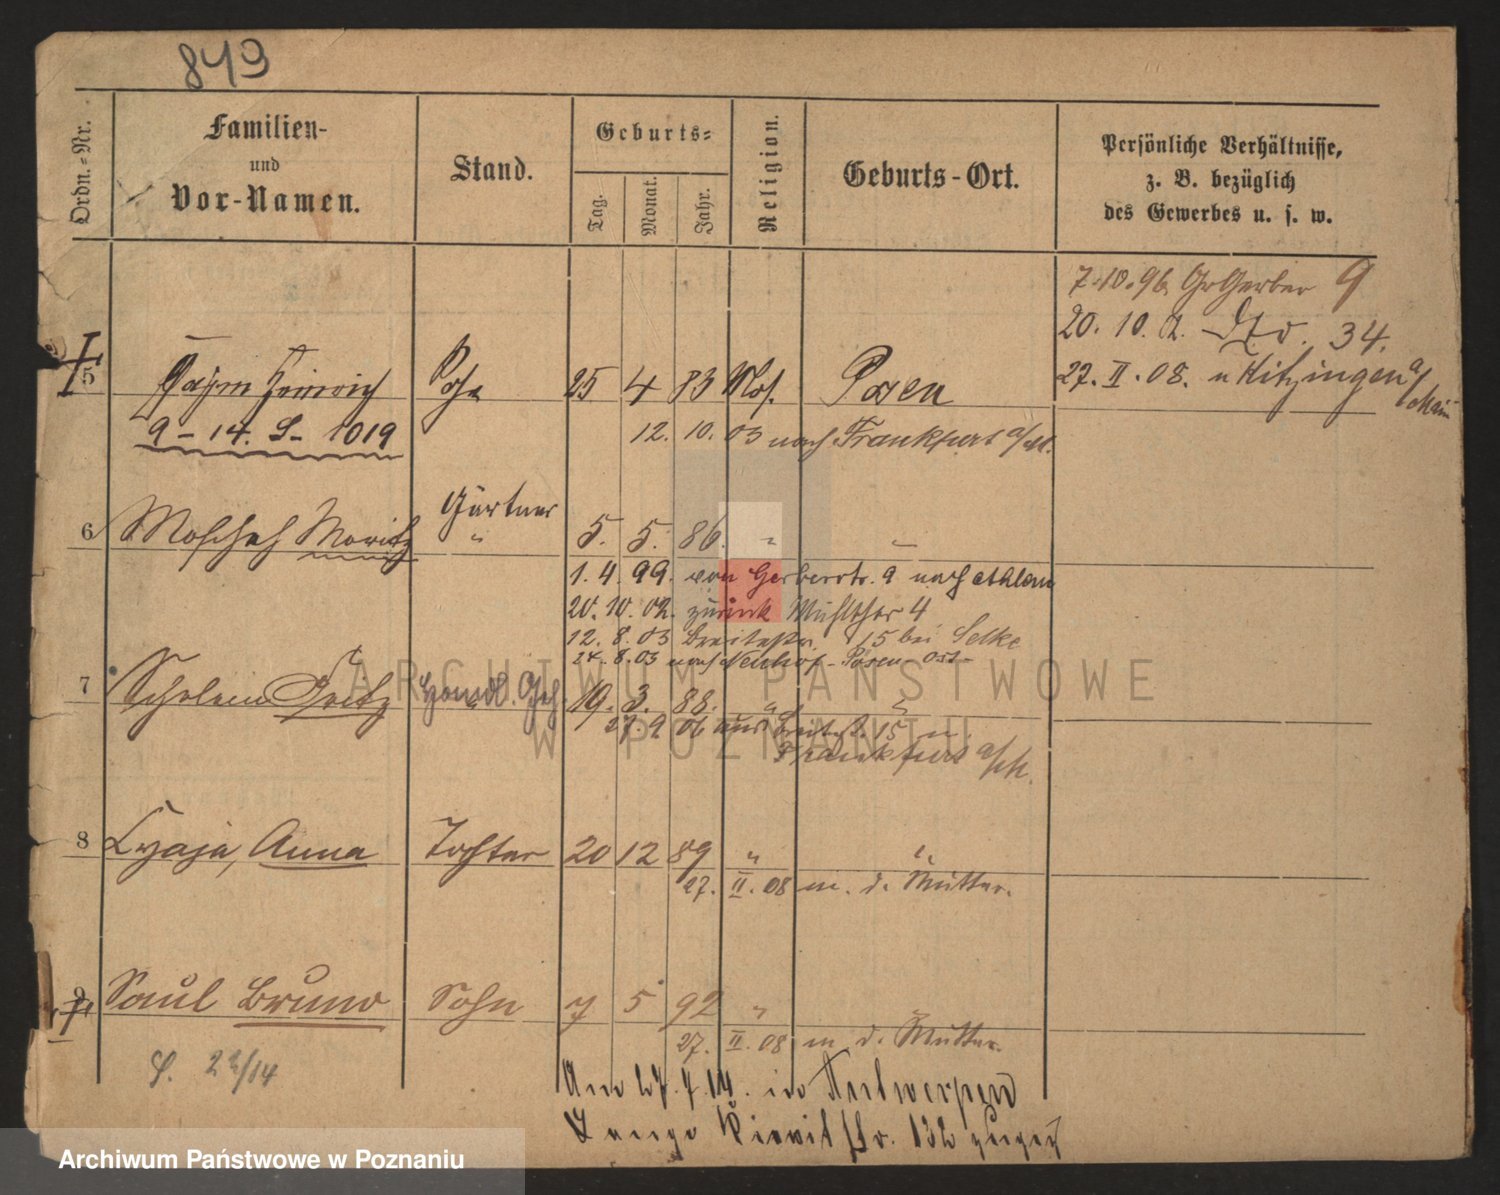 849
Ordn.-Nr.
Familien-
und
Vor-Namen.
Stand.
Geburts-
Tag.
Monat.
Jahr.
Religion.
Geburts-Ort.
Persönliche Verhältnisse,
z. B. bezüglich
des Gewerbes u. s. w.
7.10.96 Gr Gerber 9
20. 10. 34.
27. II. 08. n Kitzingen a/Main
5 Heinrich Sohn 25 4 83 Mos. Posen
9-14. S- 1019
12. 10. 03 nach Frankfurt a/M.
Gärtner
6 Moscheh Moritz " 5. 5. 86. " "
1. 4. 99. von Gerberstr. 9 nach
20. 10. 02. zurück Mühlthor 4
12. 8. 03 Breitestr. 15 bei Selke
24. 8. 03 nach - Posen Ost-
7 Scholem Fritz Handl. Geh. 19. 3. 88. " "
27. 9 06 aus Breitest. 15 n.
Frankfurt a/M.
8 Anna Tochter 20 12 89 " "
27. II. 08 m. d. Mutter.
9 Saul Bruno Sohn 7 5 92 "
27. II. 08 m d. Mutter.
S. 22/14
Am 27.7.14. in Antwerpen
Lange 132
ARCHIWUM PAŃSTWOWE
W POZNANIU
Archiwum Państwowe w Poznaniu